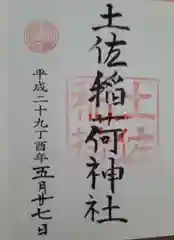 土佐稲荷神社
平成二十九丁酉年五月廿七日